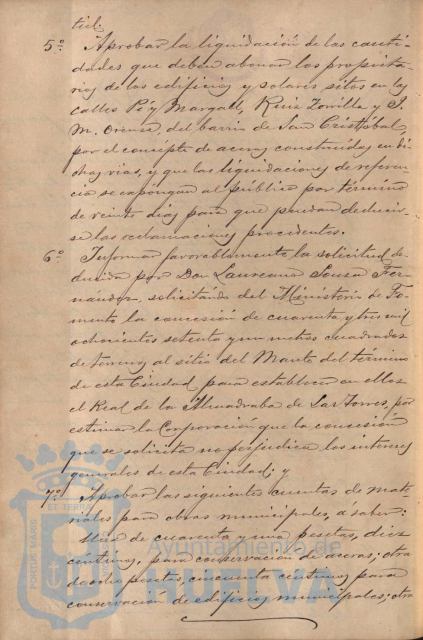 tud.
5º Aprobar la liquidación de las canti-
dades que deben abonar los propieta-
rios de los edificios y solares sitos en las
calles Pí y Margall, Ruiz Zorrilla y J.
M. Orense, del barrio de San Cristóbal,
por el concepto de aceras construidas en di-
chas vias, y que las liquidaciones de referen-
cia se expongan al público por término
de veinte dias para que puedan deducir-
se las reclamaciones procedentes.
6º Informar favorablemente la solicitud de-
ducida por Don Laureano Sousa Fer-
nandez, solicitando del Ministerio de Fo-
mento la concesión de cuarenta y tres mil
ochocientos setenta y un metros cuadrados
de terreno al sitio del Manto del término
de esta Ciudad para establecer en ellos
el Real de la Almadraba de Las Torres, por
estimar la Corporación que la concesión
que se solicita no perjudica los intereses
generales de esta Ciudad; y
7º Aprobar las siguientes cuentas de mate-
riales para obras municipales, a saber:
Una de cuarenta y una pesetas, diez
céntimos, para conservación de aceras; otra
de ocho pesetas, cincuenta céntimos para
conservación de edificios municipales; otra
PORTUS MARIS
ET TERRÆ
Ayuntamiento de
HUELVA